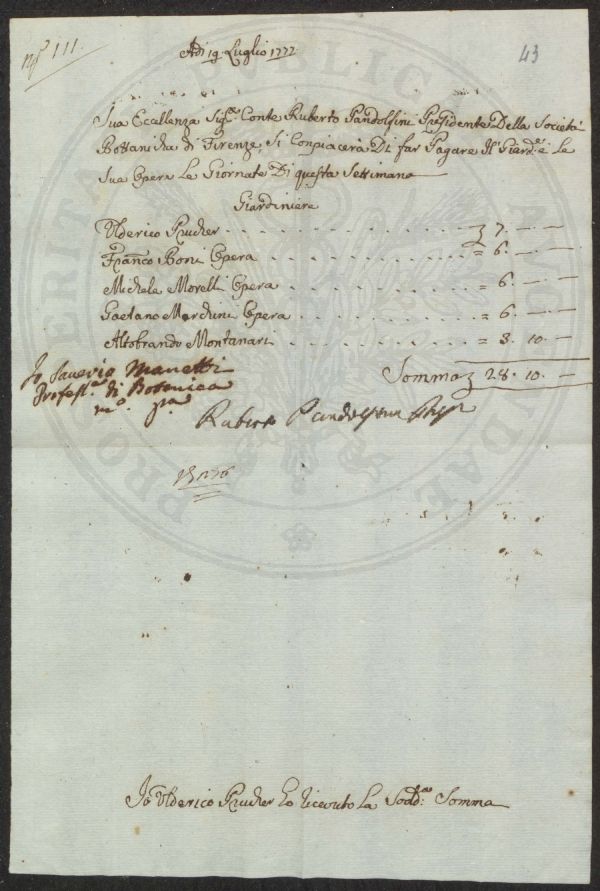 N.º 111.
43
Adì 19 Luglio 1772
Sua Eccellenza Sig.re Conte Ruberto Pandolfini Presidente Della Società
Bottanicha di Firenze, Si Conpiacerà Di far Pagare Il Giard.e e Le
Sue Opera Le Giornate Di questa Settimana
Giardiniere
Ulderico Prucher . . . 7. — —
Franco Boni Opera . . . = 6. — —
Michele Morelli Opera . . . = 6. — —
Gaetano Mardini Opera . . . = 6. — —
Altobrando Montanari . . . = 3. 10. —
Somma 28. 10. —
Io Saverio Manetti
Profess.e di Botanica
m.o p.a
Ruberto Pandolfini
Io Ulderico Prucher ho riceuto La Sodd.a Somma
PUBLICAE
PRO